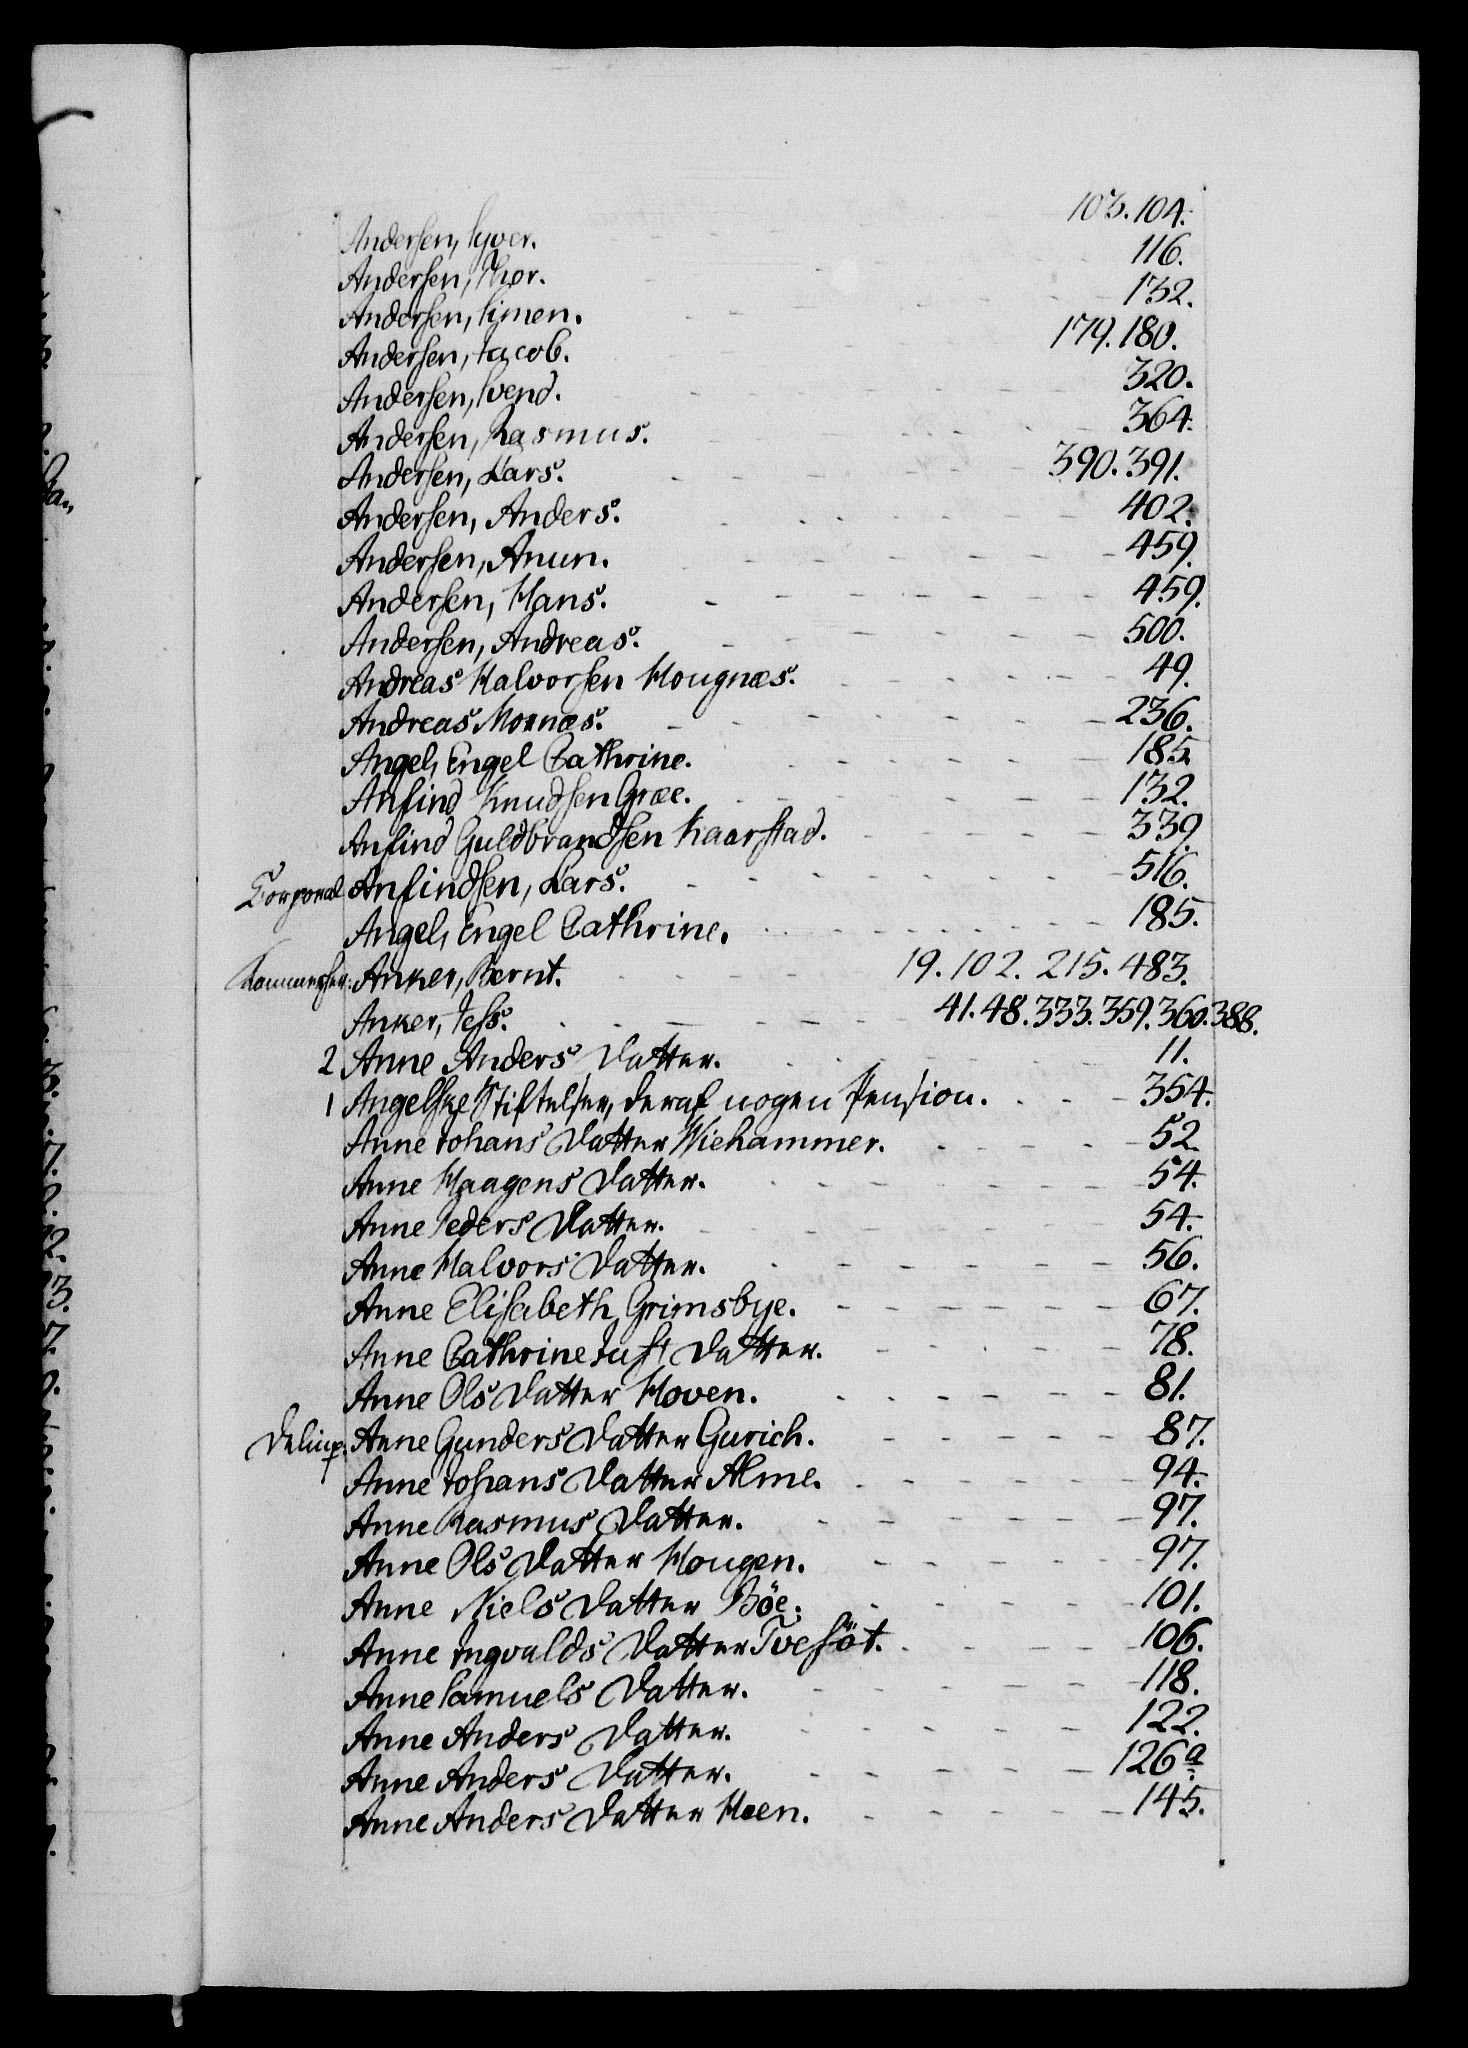 Andersen, Syver. 103. 104.
Andersen, Thor. 116.
Andersen, Simen. 132.
Andersen, Jacob. 179. 180.
Andersen, Svend. 320.
Andersen, Rasmus. 364.
Andersen, Lars. 390. 391.
Andersen, Anders. 402.
Andersen, Anun. 459.
Andersen, Hans. 459.
Andersen, Andreas. 500.
Andreas Halvorsen Hougnæs. 49.
Andreas Mornæs. 236.
Angel, Engel Cathrine. 185
Anfind Knudsen Græe. 132.
Anfind Guldbrandsen Kaarstad. 339
Corporal Anfindsen, Lars. 516.
Angel, Engel Cathrine. 185.
Kammerher: Anker, Bernt. 19. 102. 215. 483.
Anker, Jess. 41. 48. 333. 359. 360. 388.
2 Anne Anders Datter. 11.
1 Angelske Stiftelser, deraf nogen Pension. 354.
Anne Johans Datter Wiehammer. 52
Anne Haagens Datter. 54.
Anne Peders Datter. 54.
Anne Halvors Datter. 56.
Anne Elisabeth Grimsbye. 67.
Anne Cathrine Just Datter. 78.
Anne Ols Datter Hoven. 81.
Delinq: Anne Gunders Datter Gurich. 87.
Anne Johans Datter Alme. 94.
Anne Rasmus Datter. 97.
Anne Ols Datter Hougen. 97.
Anne Niels Datter Böe. 101.
Anne Ingvalds Datter Tvesöt. 106.
Anne Samuels Datter. 118.
Anne Anders Datter. 122.
Anne Anders Datter. 126 a
Anne Anders Datter Heen. 145.